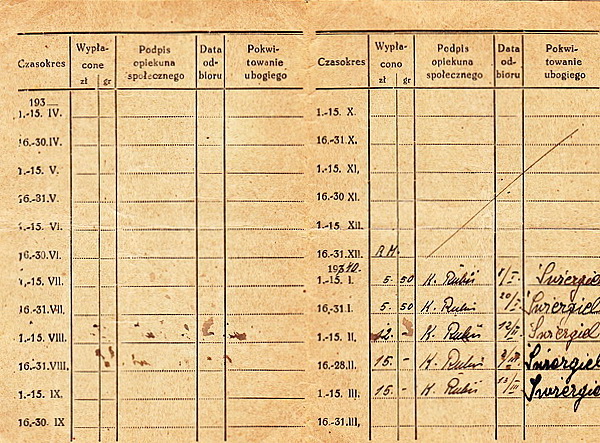 Czasokres Wypła-cone zł gr Podpis opiekuna społecznego Data od-bioru Pokwi-towanie ubogiego
193
1.-15. IV.
16.-30. IV.
1.-15. V.
16.-31. V.
1.-15. VI.
16.-30. VI.
1.-15. VII.
16.-31. VII.
1.-15. VIII.
16.-31. VIII.
1.-15. IX.
16.-30. IX
Czasokres Wypła-cono zł gr Podpis opiekuna społecznego Data od-bioru Pokwi-towanie ubogiego
1.-15. X.
16.-31. X.
1.-15. XI.
16.-30 XI.
1.-15. XII.
16.-31. XII. RM.
1940.
1.-15. I. 5. 50 K. Rubiś 1/I. Świergiel
16.-31. I. 5. 50 K. Rubiś 20/I. Świergiel
1.-15. II. 12. - K. Rubiś 12/II. Świergiel
16.-28. II. 15. - K. Rubiś Świergiel
1.-15. III. 15. - K. Rubiś Świergiel
16.-31. III.